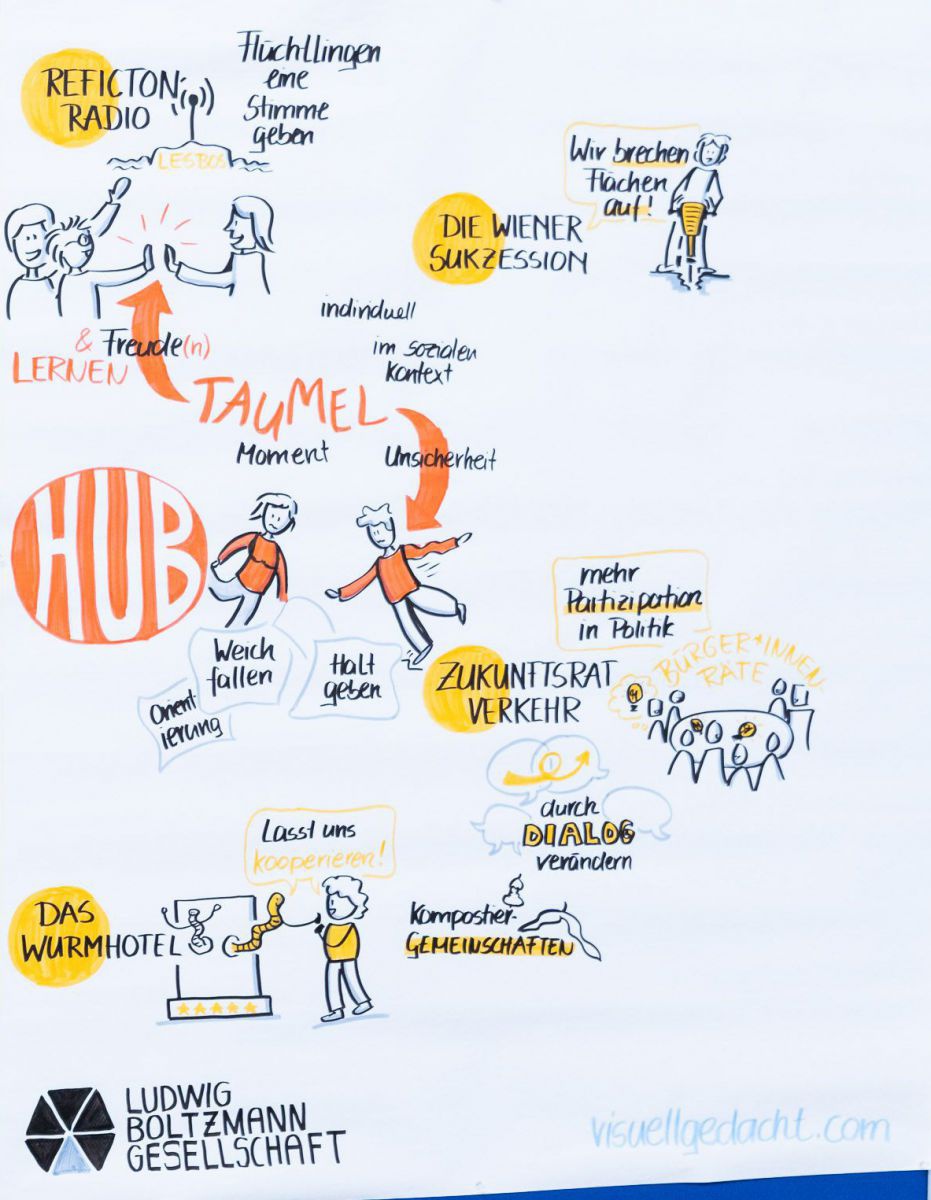 REFICTON
RADIO
Flüchtllingen
eine
Stimme
geben
LESBOS
Wir brechen
Flächen
auf!
DIE WIENER
SUKZESSION
individuell
im sozialen
Kontext
& Freude(n)
LERNEN
TAUMEL
Moment
Unsicherheit
HUB
Weich
fallen
Halt
geben
Orient-
ierung
mehr
Partizipation
in Politik
ZUKUNFTSRAT
VERKEHR
BÜRGER*INNEN-
RÄTE
durch
DIALOG
verändern
Lasst uns
kooperieren!
DAS
WURMHOTEL
Kompostier-
GEMEINSCHAFTEN
LUDWIG
BOLTZMANN
GESELLSCHAFT
visuellgedacht.com